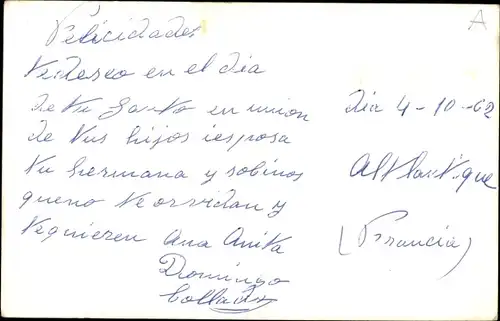 A
Felicidades
te deseo en el dia
de tu Santo en union
de tus hijos iesposa
tu hermana y sobinos
queno te orvidan y
te quieren Ana Anita
Domingo
Collados
dia 4-10-62
Althlantique
(Francia)